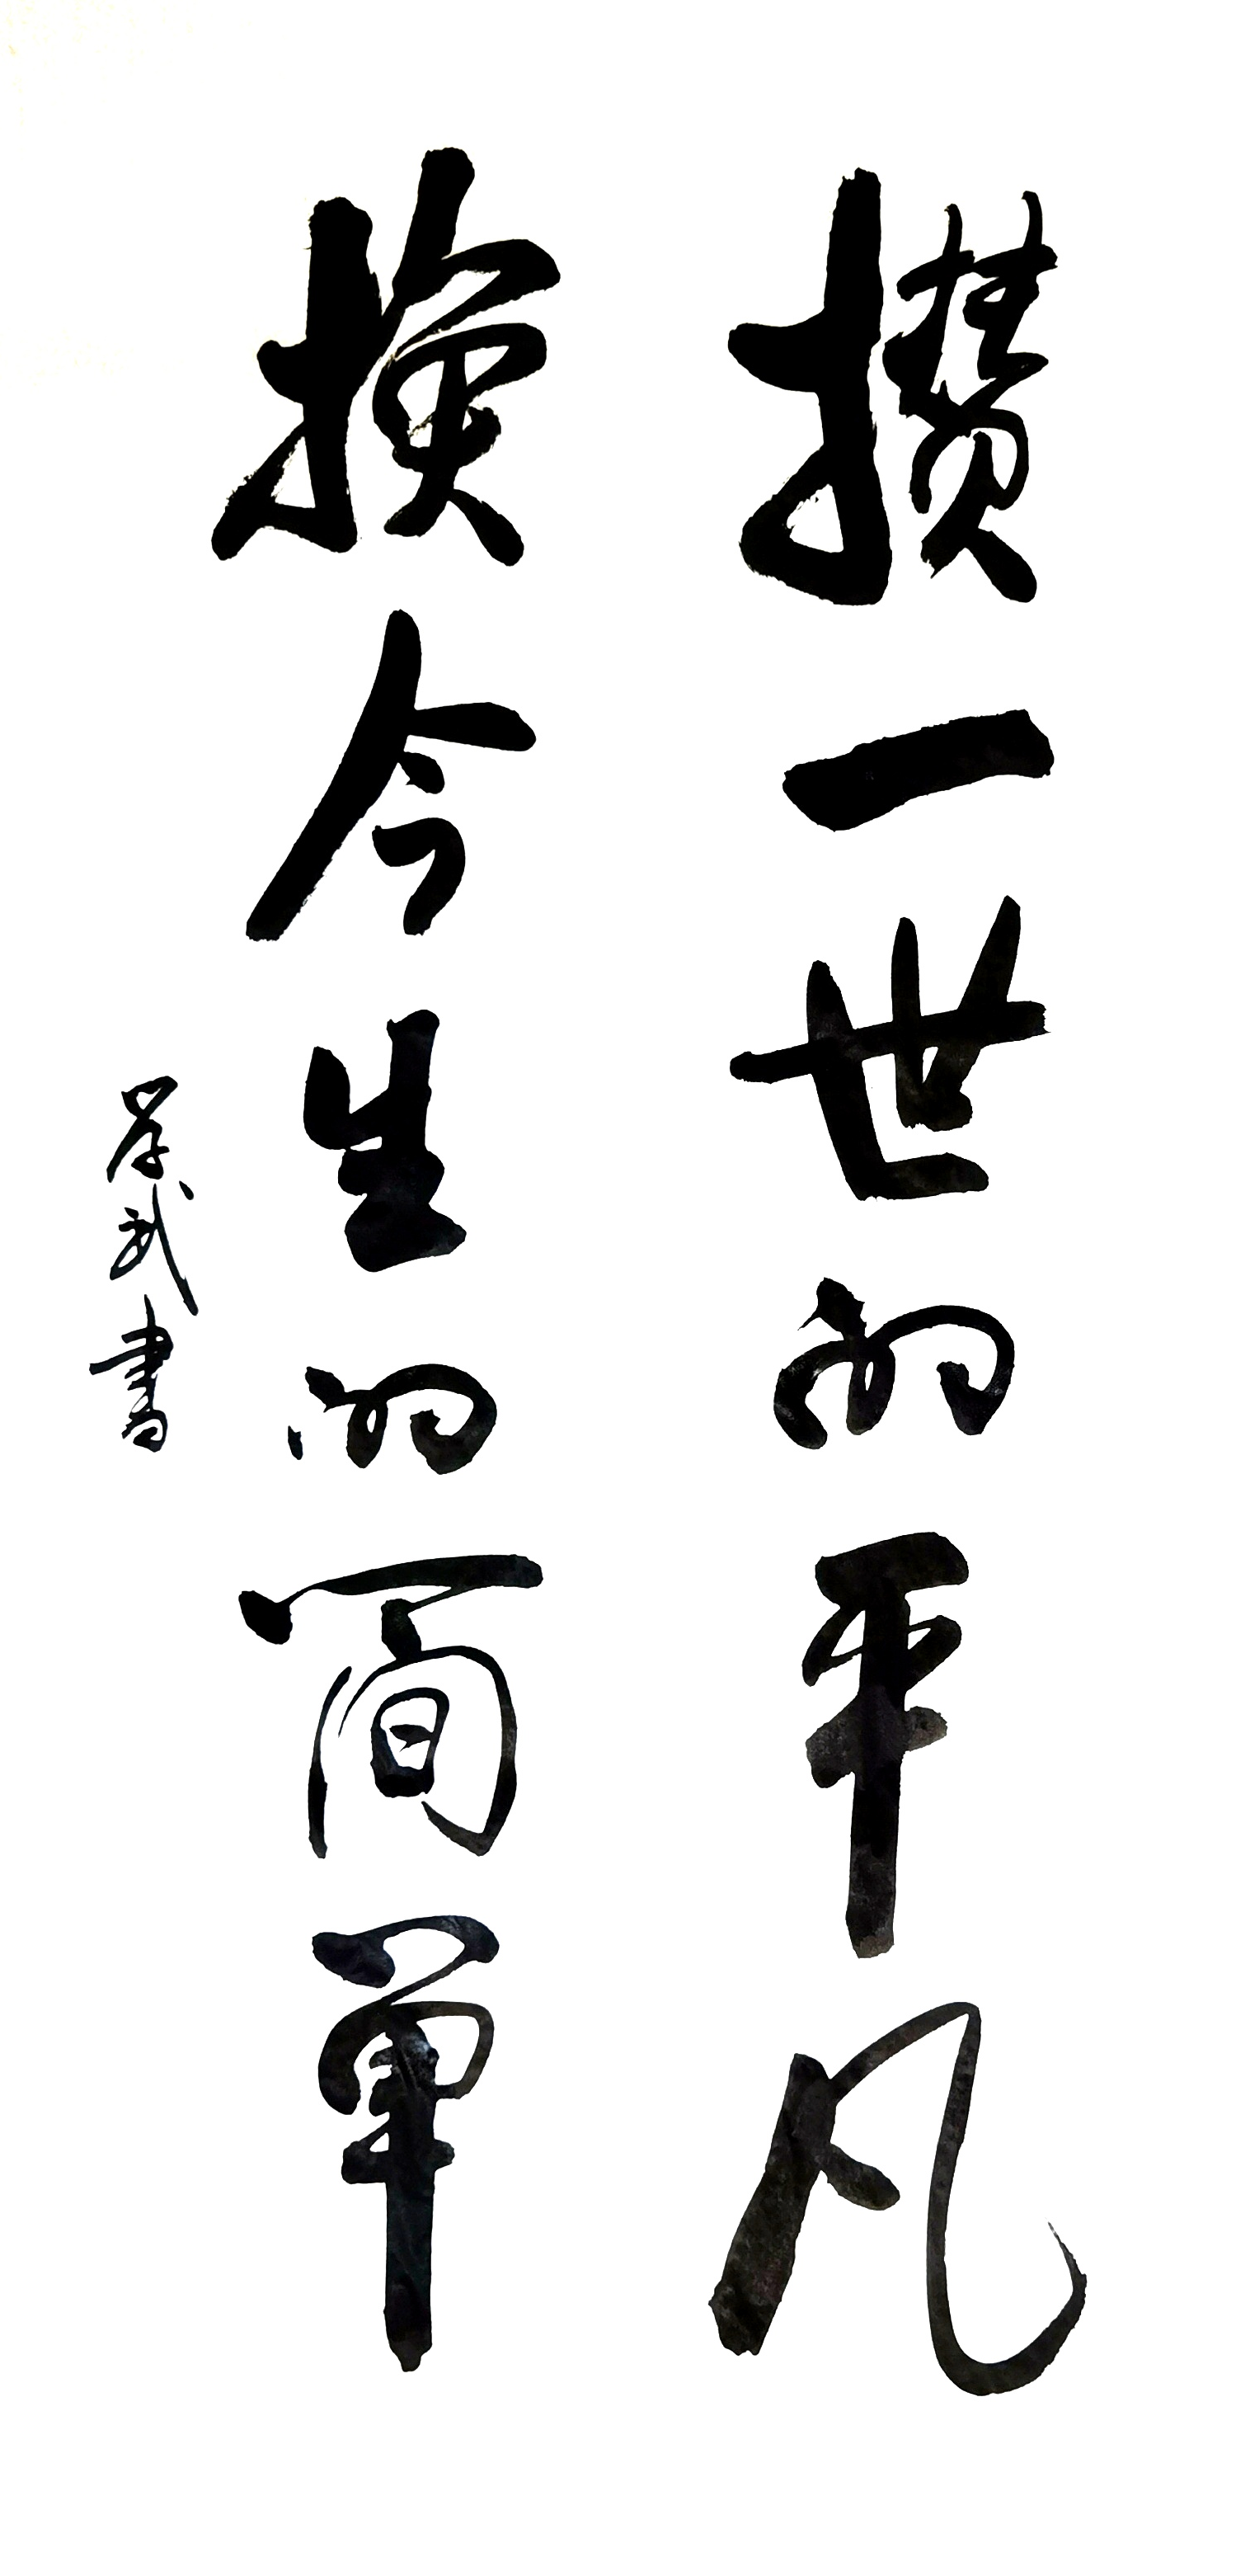 攒一世的平凡
换今生的简单
学武书